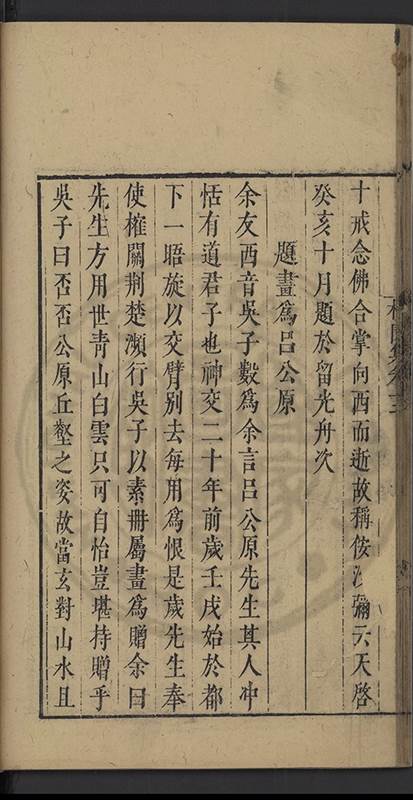 十戒念佛合掌向西而逝故稱侒沙彌云天啓
癸亥十月題於留光舟次
題畫爲呂公原
余友西音吳子數爲余言呂公原先生其人冲
恬有道君子也神交二十年前歲壬戌始於都
下一晤旋以交臂别去每用爲恨是歲先生奉
使榷關荆楚瀕行吳子以素册屬畫爲贈余曰
先生方用世靑山白雲只可自怡豈堪持贈乎
吳子曰否否公原丘壑之姿故當玄對山水且